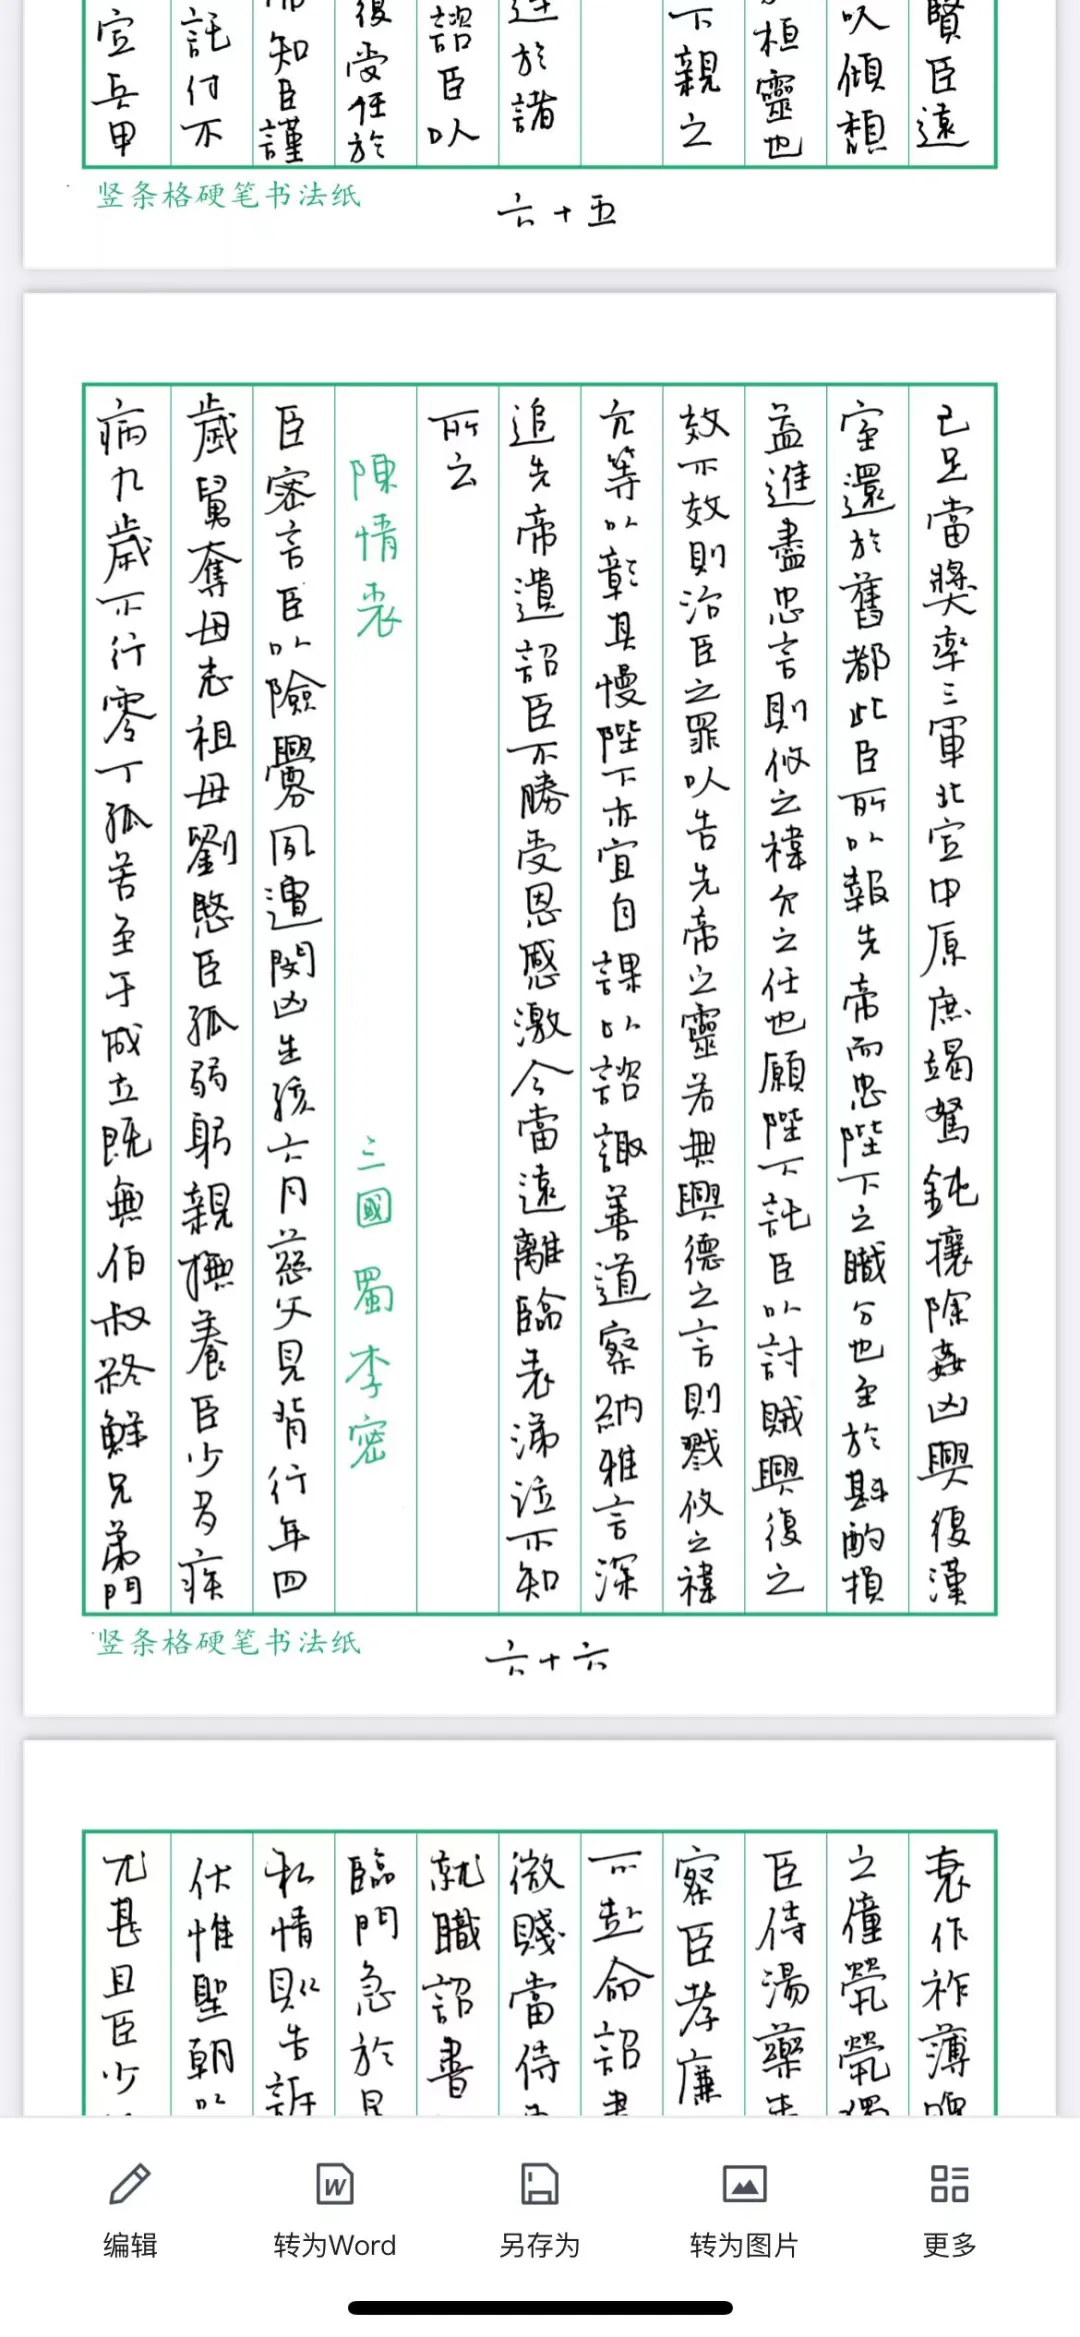 賢臣遠
以傾頹
桓靈也
下親之
於諸
諮臣以
後受任於
知臣謹
託付不
定兵甲
竖条格硬笔书法纸
六十五
已足當獎率三軍北定中原庶竭駑鈍攘除姦凶興復漢
室還於舊都此臣所以報先帝而忠陛下之職分也至於斟酌損
益進盡忠言則攸之禕允之任也願陛下託臣以討賊興復之
效不效則治臣之罪以告先帝之靈若無興德之言則戮攸之禕
允等以彰其慢陛下亦宜自課以諮諏善道察納雅言深
追先帝遺詔臣不勝受恩感激今當遠離臨表涕泣不知
所云
陳情表 三國 蜀 李密
臣密言臣以險釁夙遭閔凶生孩六月慈父見背行年四
歲舅奪母志祖母劉愍臣孤弱躬親撫養臣少多疾
病九歲不行零丁孤苦至于成立既無伯叔終鮮兄弟門
竖条格硬笔书法纸
六十六
衰作祚薄晚
之僮煢煢獨
臣侍湯藥未
察臣孝廉
不赴命詔書
微賤當侍
就職詔書
臨門急於星
私情則告訴
伏惟聖朝以
尤甚且臣少
编辑
转为Word
另存为
转为图片
更多